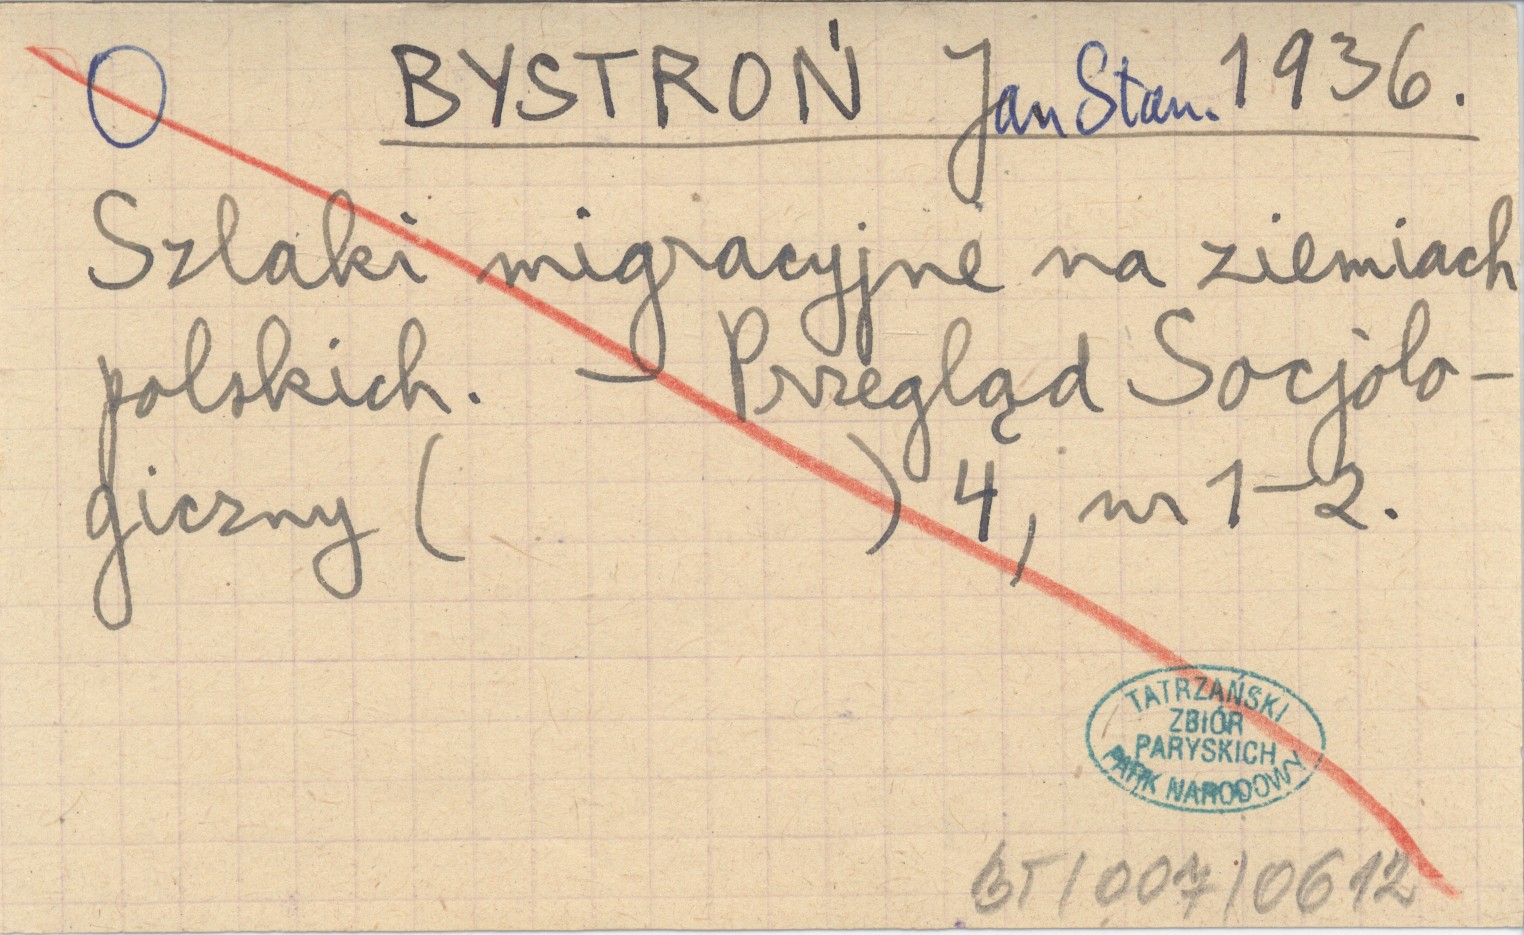 O BYSTROŃ Jan Stan. 1936.
Szlaki migracyjne na ziemiach
polskich. – Przegląd Socjolo-
giczny ( ) 4, nr 1-2.
TATRZAŃSKI
ZBIÓR
PARYSKICH
PARK NARODOWY
BT/007/0612